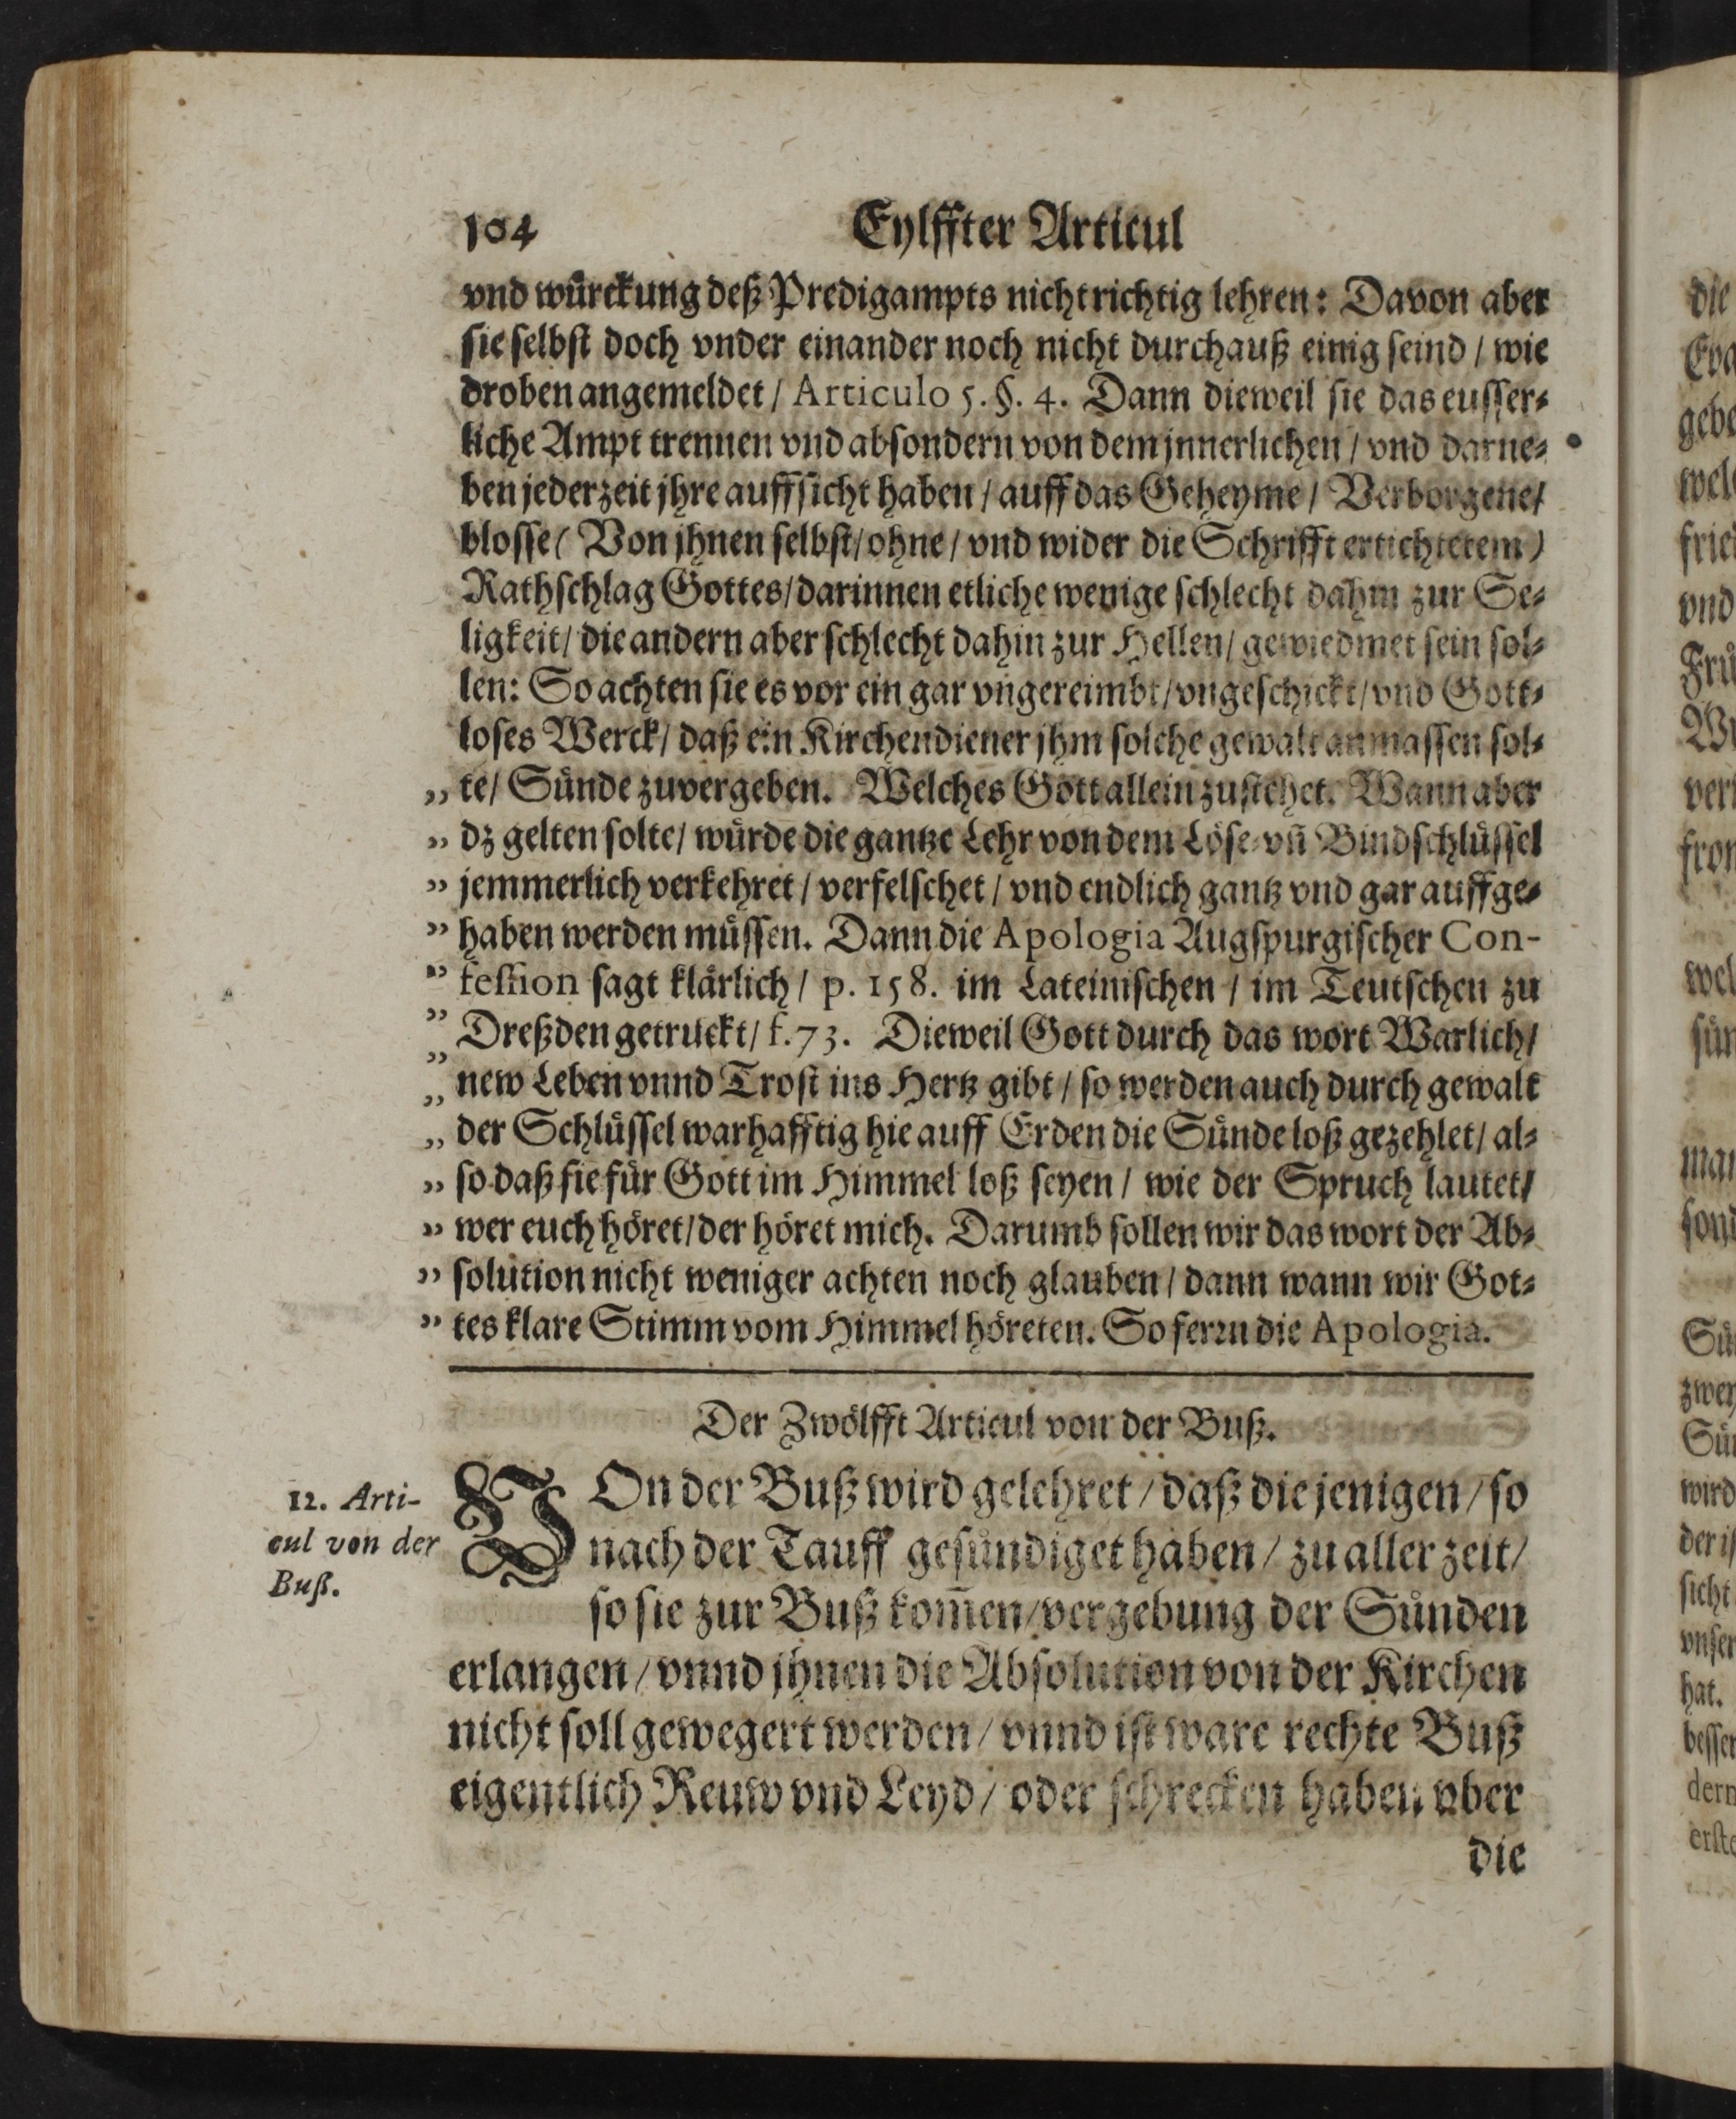 104 Eylffter Articul
vnd würckung deß Predigampts nicht richtig lehren: Davon aber
sie selbst doch vnder einander noch nicht durchauß einig seind / wie
droben angemeldet / Articulo 5. §. 4. Dann dieweil sie das eusser-
liche Ampt trennen vnd absondern von dem jnnerlichen / vnd darne-
ben jederzeit jhre auffsicht haben / auff das Geheyme / Verborgene /
blosse ( Von jhnen selbst / ohne / vnd wider die Schrifft ertichtetem )
Rathschlag Gottes / darinnen etliche wenige schlecht dahin zur Se-
ligkeit / die andern aber schlecht dahin zur Hellen / gewiedmet sein sol-
len: So achten sie es vor ein gar vngereimbt / vngeschickt / vnd Gott-
loses Werck / daß ein Kirchendiener jhm solche gewalt anmassen sol-
„ te / Sünde zuvergeben. Welches Gott allein zustehet. Wann aber
„ dz gelten solte / würde die gantze Lehr von dem Löse- vñ Bindschlüssel
„ jemmerlich verkehret / verfelschet / vnd endlich gantz vnd gar auffge-
„ haben werden müssen. Dann die Apologia Augspurgischer Con-
„ fession sagt klärlich / p. 158. im Lateinischen / im Teutschen zu
„ Dreßden getruckt / f. 73. Dieweil Gott durch das wort Warlich /
„ new Leben vnnd Trost ins Hertz gibt / so werden auch durch gewalt
„ der Schlüssel warhafftig hie auff Erden die Sünde loß gezehlet / al-
„ so daß sie für Gott im Himmel loß seyen / wie der Spruch lautet /
„ wer euch höret / der höret mich. Darumb sollen wir das wort der Ab-
„ solution nicht weniger achten noch glauben / dann wann wir Got-
„ tes klare Stimm vom Himmel höreten. So ferrn die Apologia.
Der Zwölfft Articul von der Buß.
12. Arti-
cul von der
Buß.
VOn der Buß wird gelehret / daß die jenigen / so
nach der Tauff gesündiget haben / zu aller zeit /
so sie zur Buß kom̃en / vergebung der Sünden
erlangen / vnnd jhnen die Absolution von der Kirchen
nicht soll gewegert werden / vnnd ist ware rechte Buß
eigentlich Reuw vnd Leyd / oder schrecken haben vber
die